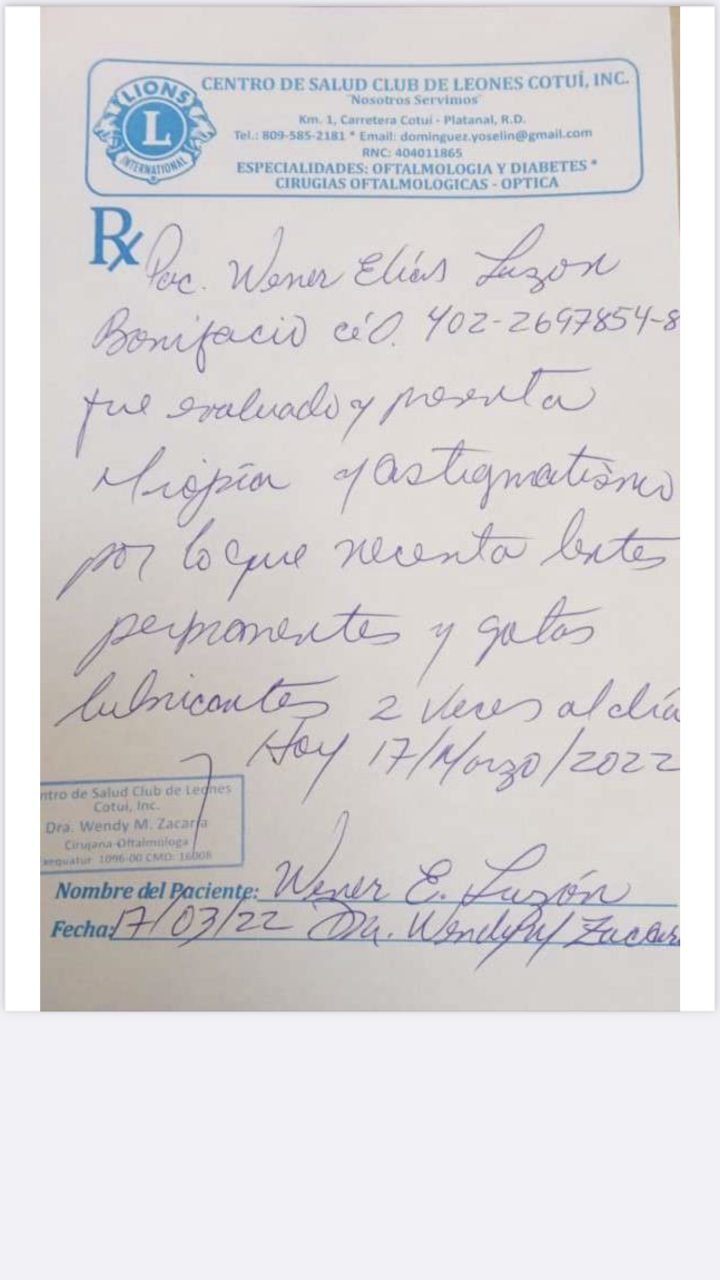 LIONS
L
INTERNATIONAL
CENTRO DE SALUD CLUB DE LEONES COTUÍ, INC.
"Nosotros Servimos"
Km. 1, Carretera Cotuí - Platanal, R.D.
Tel.: 809-585-2181 * Email: dominguez.yoselin@gmail.com
RNC: 404011865
ESPECIALIDADES: OFTALMOLOGIA Y DIABETES *
CIRUGIAS OFTALMOLOGICAS - OPTICA
Rx
Pac. Wener Elías Luzon
Bonifacio céd. 402-2697854-8
fue evaluado y presenta
Miopía y astigmatismo
por lo que necesita lentes
permanentes y gotas
lubricantes 2 veces al día
Hoy 17/Marzo/2022
ntro de Salud Club de Leones
Cotuí, Inc.
Dra. Wendy M. Zacaría
Cirujana-Oftalmologa
xequatur 1096-00 CMD: 16008
Nombre del Paciente: Wener E. Luzón
Fecha: 17/03/22 Dra. Wendy M Zacar